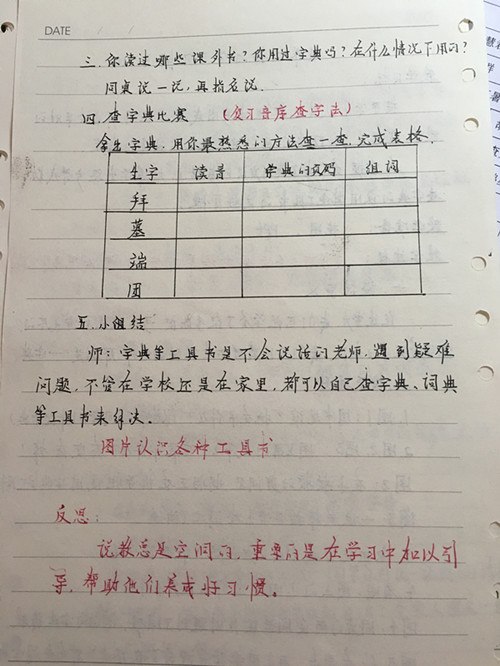 DATE / /
三. 你读过哪些课外书？你用过字典吗？在什么情况下用的？
同桌说一说，再指名说.
四. 查字典比赛 （复习音序查字法）
拿出字典，用你最熟悉的方法查一查，完成表格.
生字 读音 字典的页码 组词
拜
墓
端
团
五. 小结
师：字典等工具书是不会说话的老师，遇到疑难
问题，不管在学校还是在家里，都可以自己查字典、词典
等工具书来解决。
图片认识各种工具书
反思：
说教总是空洞的，重要的是在学习中加以引
导，帮助他们养成好习惯。